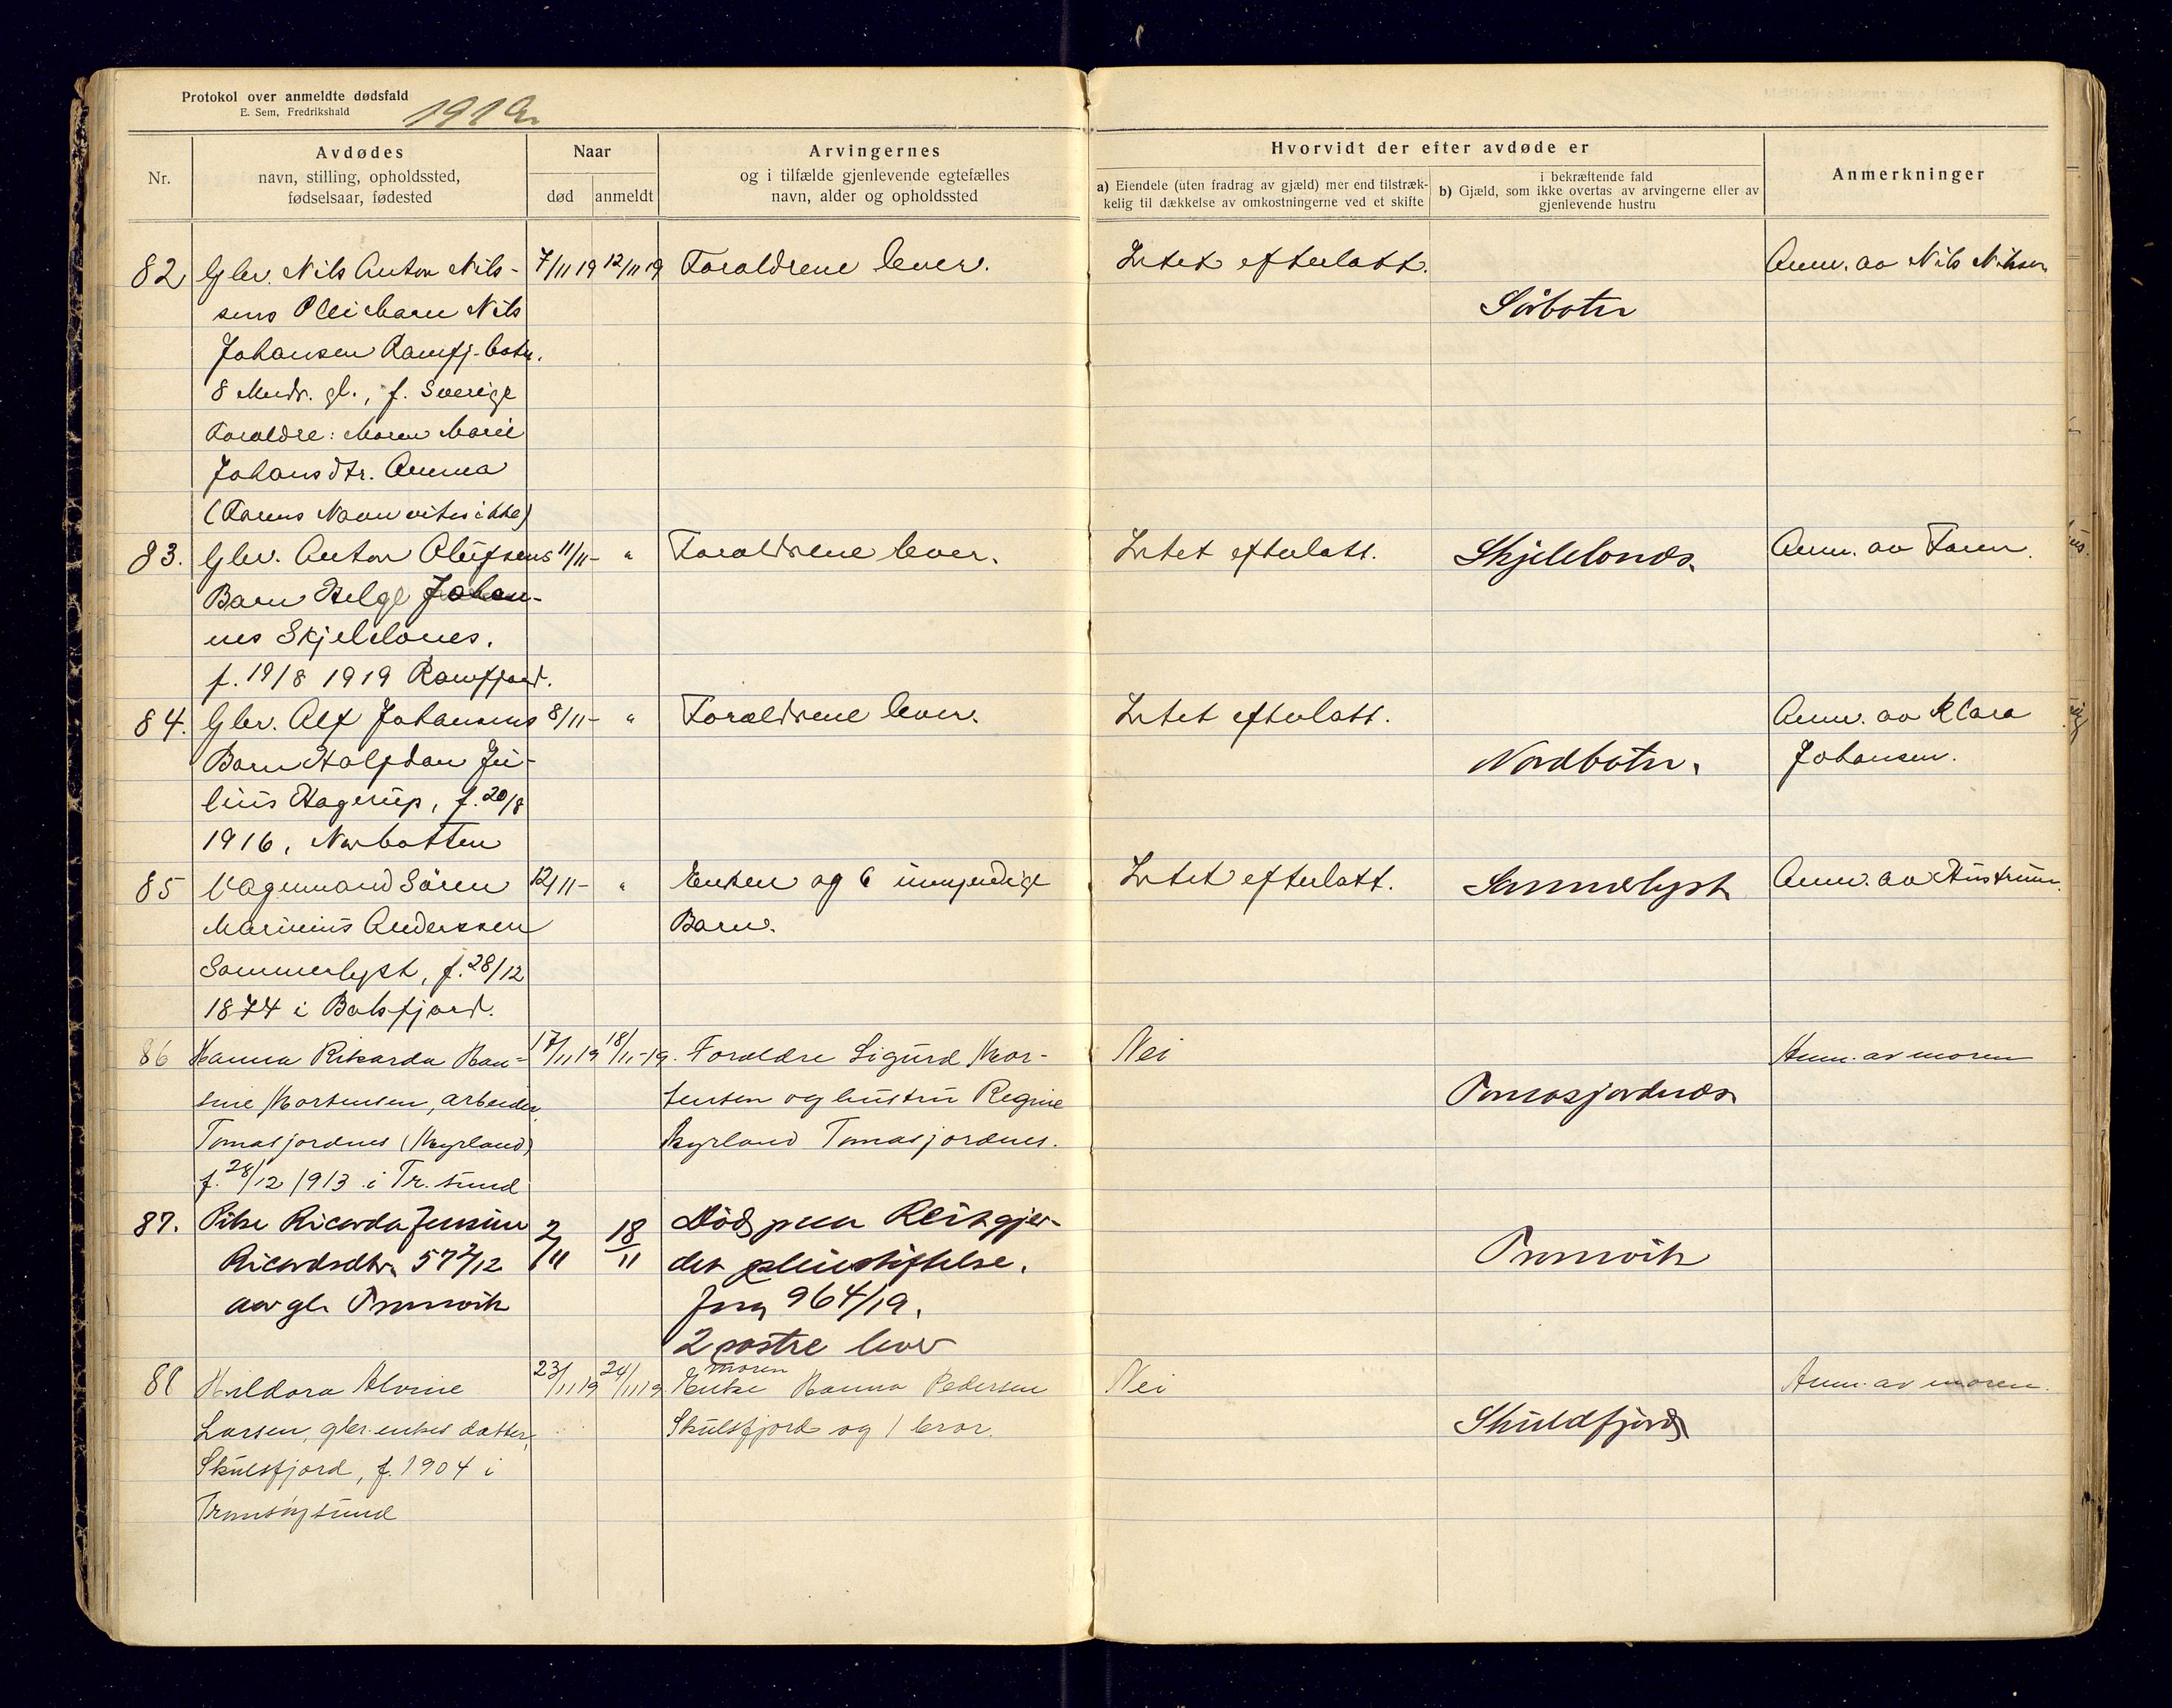 Protokol over anmeldte dødsfald
E. Sem, Fredrikshald
1919.
Nr.
Avdødes
navn, stilling, opholdssted,
fødselsaar, fødested
Naar
død
anmeldt
Arvingernes
og i tilfælde gjenlevende egtefælles
navn, alder og opholdssted
Hvorvidt der efter avdøde er
a) Eiendele (uten fradrag av gjæld) mer end tilstræk-
kelig til dækkelse av omkostningerne ved et skifte
i bekræftende fald
b) Gjæld, som ikke overtas av arvingerne eller av
gjenlevende hustru
Anmerkninger
82 Gbr. Nils Anton Nils- 7/11 19 12/11 19 Forældrene lever. Intet efterlatt. Anm. av Nils Nilsen
sens Pleibarn Nils Sørbotn
Johansen Ramfj. botn.
8 Mndr. gl., f. Sverige
Forældre: Maren Marie
Johansdtr. Omma
(Farens Navn vites ikke)
83. Gbr. Anton Olufsens 11/11 - " Forældrene lever. Intet efterlatt. Skjelelvnes. Anm. av Faren.
Barn Helge Johan-
nes Skjelelvnes.
f. 19/8 1919 Ramfjord.
84. Gbr. Alf Johansens 8/11 - " Forældrene lever. Intet efterlatt. Anm. av Klara
Barn Halfdan Ju- Nordbotn. Johansen.
lius Hagerup, f. 20/8
1916, Norbotten
85 Vognmand Sören 12/11 - " Enken og 6 umyndige Intet efterlatt. Sommerlyst Anm. av Hustruen.
Marinius Anderssen Barn.
Sommerlyst, f. 28/12
1874 i Balsfjord.
86 Hanna Rikarda Han- 17/11 19 18/11-19. Foreldre Sigurd Mor- Nei Anm. av moren
sine Mortensen, arbeider, tensen og hustru Regine Tomasjordnes.
Tomasjordnes (Myrland) Myrland Tomasjordnes.
f. 28/12 1913 i Tr. sund
87. Pike Ricarda Jensine 2/11 18/11 Död paa Reitgjer-
Ricardsdtr. 57 2/12 det pleiestiftelse. Tromvik
aar gl. Tromvik Jnr 964/19.
2 søstre lever
88 Hildora Alvine 23/11 19 24/11 19. moren Enke Hanna Pedersen Nei Anm. av moren.
Larsen, gbr. enkes datter, Skulsfjord og 1 bror. Skuldfjord
Skulsfjord, f. 1904 i
Tromsøysund